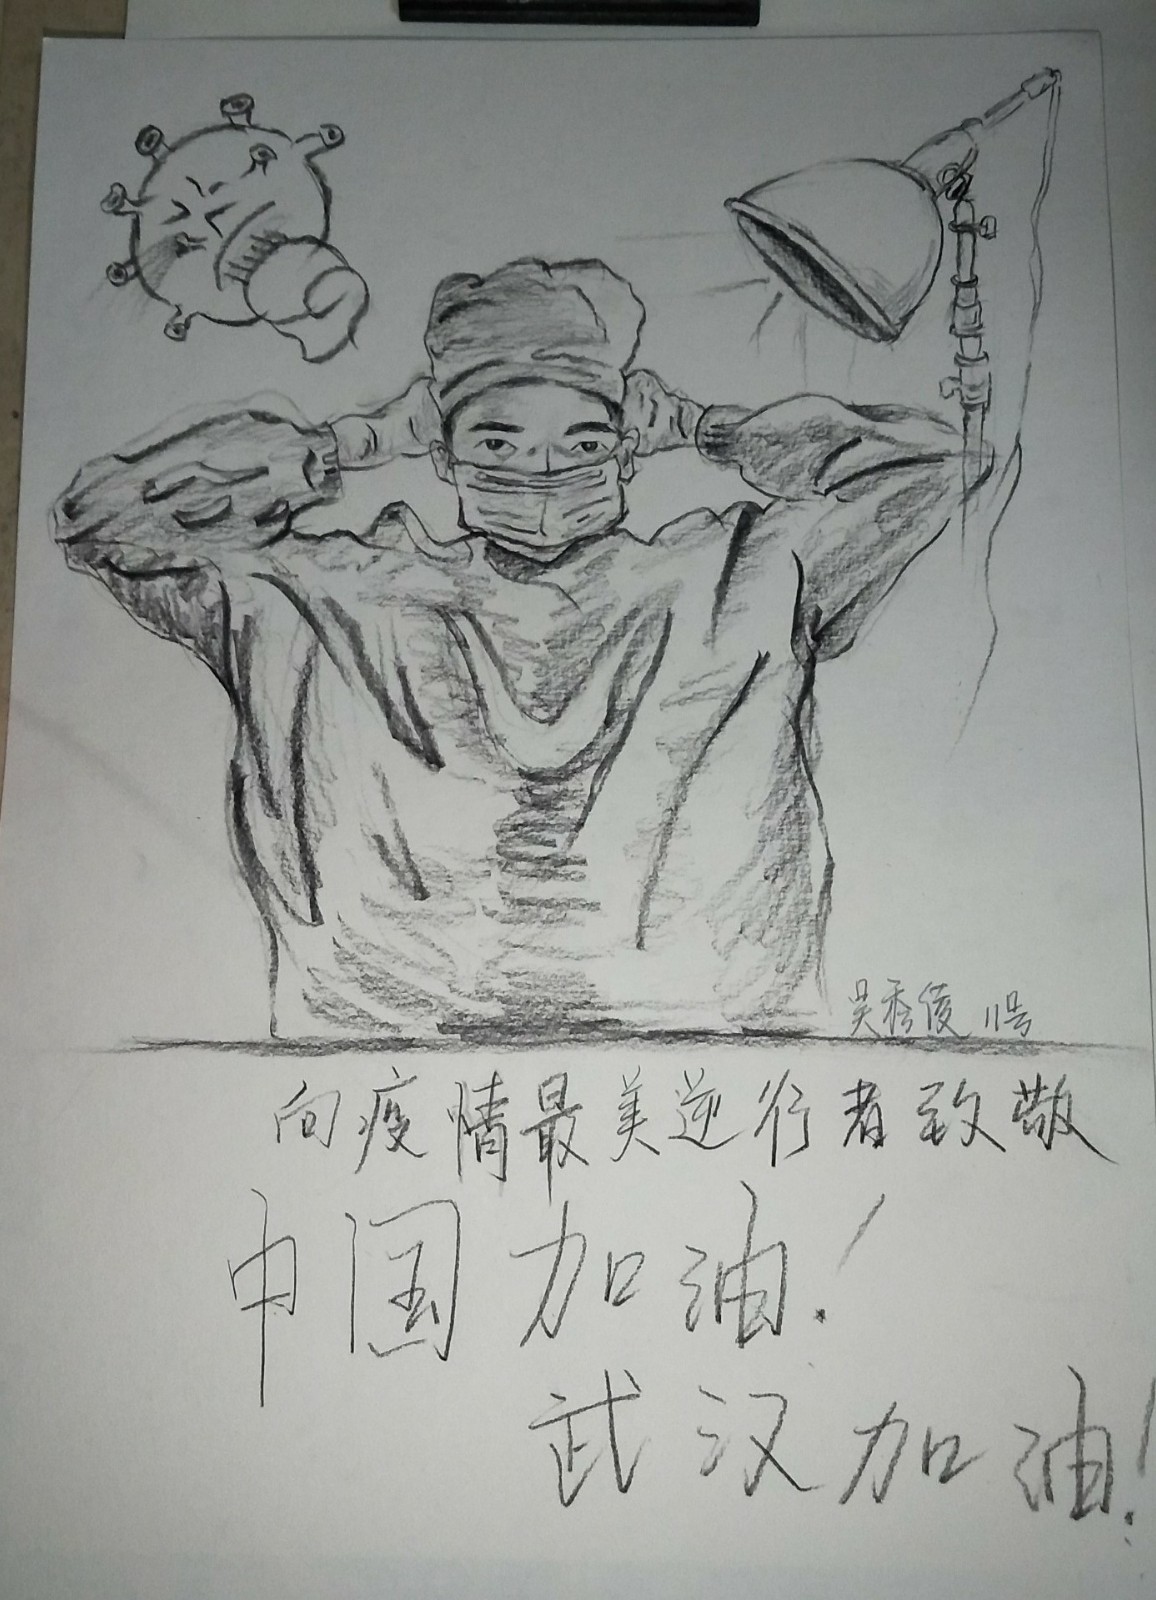 吴秀俊 11号
向疫情最美逆行者致敬
中国加油!
武汉加油!